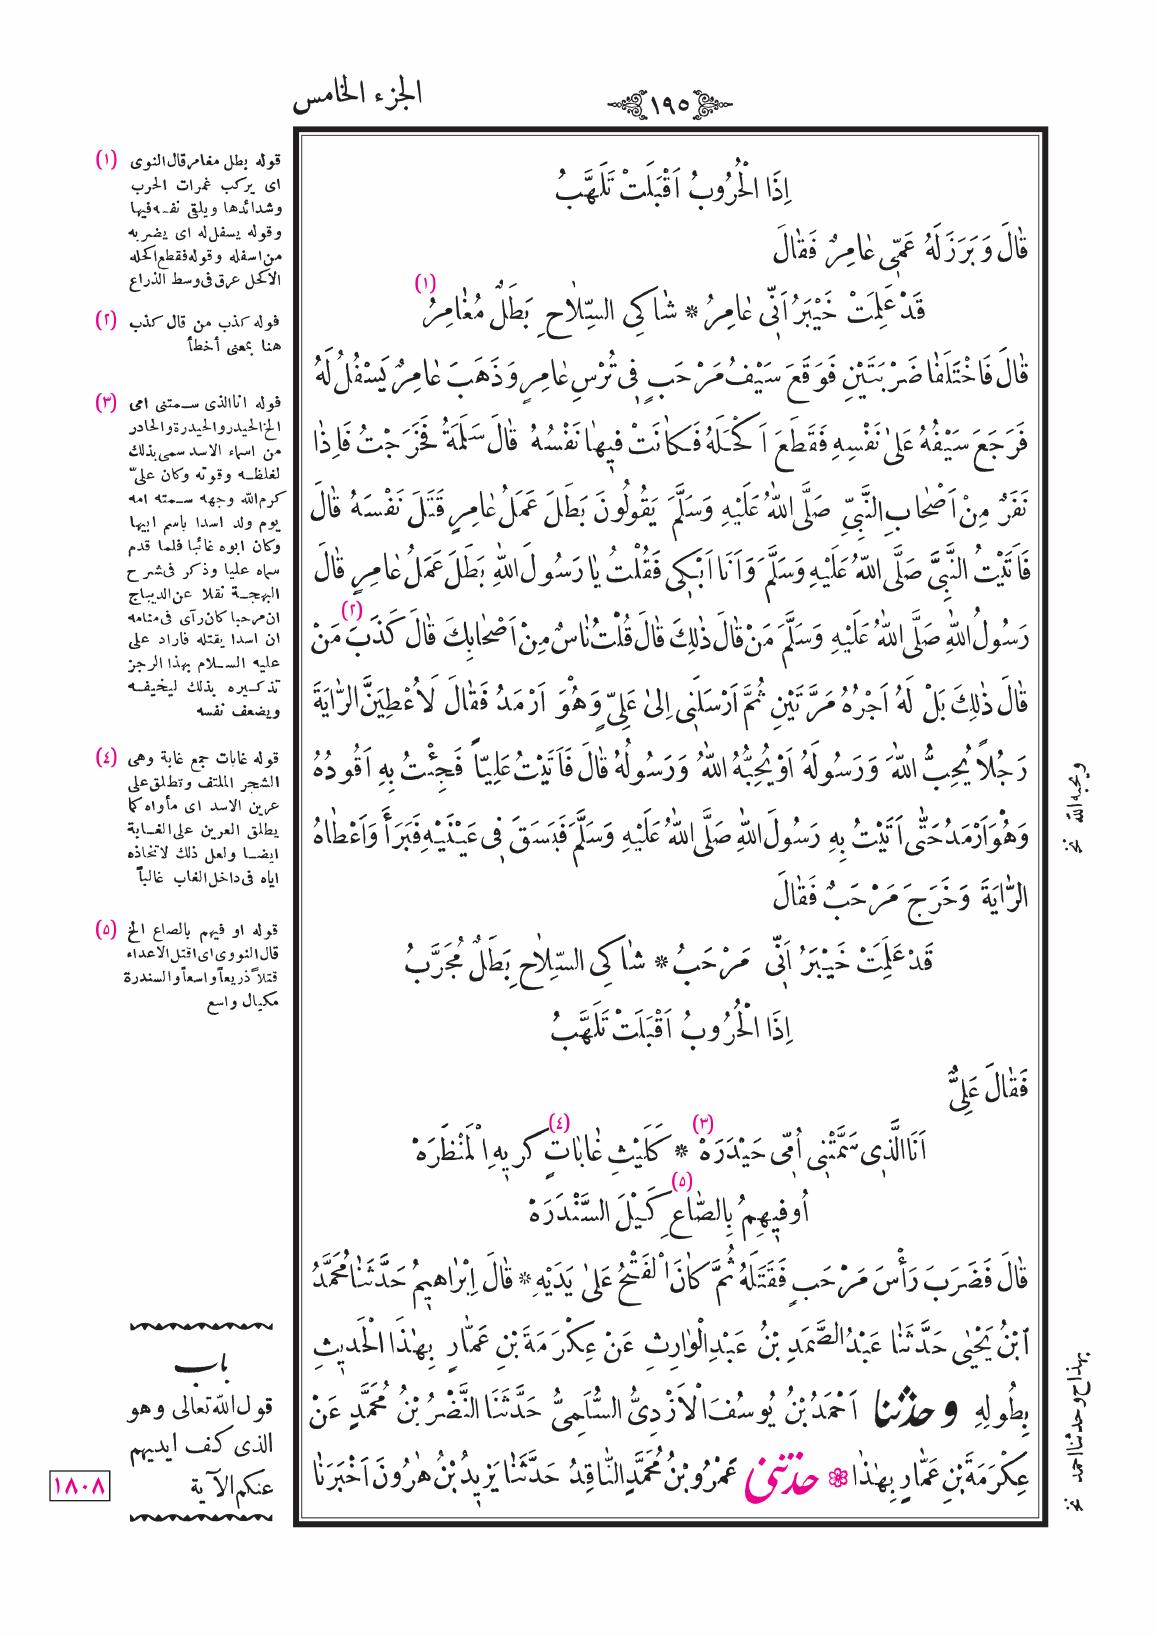 الجزء الخامس
١٩٥
إِذَا الْحُرُوبُ اَقْبَلَتْ تَلَهَّبُ
قَالَ وَبَرَزَ لَهُ عَمِّى عَامِرٌ فَقَالَ
قَدْ عَلِمَتْ خَيْبَرُ اَنِّى عَامِرُ * شَاكِى السِّلَاحِ بَطَلٌ مُغَامِرُ (١)
قَالَ فَاخْتَلَفَا ضَرْبَتَيْنِ فَوَقَعَ سَيْفُ مَرْحَبٍ فِى تُرْسِ عَامِرٍ وَذَهَبَ عَامِرٌ يَسْفُلُ لَهُ
فَرَجَعَ سَيْفُهُ عَلَى نَفْسِهِ فَقَطَعَ اَكْحَلَهُ فَكَانَتْ فِيهَا نَفْسُهُ قَالَ سَلَمَةُ فَخَرَجْتُ فَاِذَا
نَفَرٌ مِنْ اَصْحَابِ النَّبِىِّ صَلَّى اللّٰهُ عَلَيْهِ وَسَلَّمَ يَقُولُونَ بَطَلَ عَمَلُ عَامِرٍ قَتَلَ نَفْسَهُ قَالَ
فَاَتَيْتُ النَّبِىَّ صَلَّى اللّٰهُ عَلَيْهِ وَسَلَّمَ وَاَنَا اَبْكِى فَقُلْتُ يَا رَسُولَ اللّٰهِ بَطَلَ عَمَلُ عَامِرٍ قَالَ
رَسُولُ اللّٰهِ صَلَّى اللّٰهُ عَلَيْهِ وَسَلَّمَ مَنْ قَالَ ذٰلِكَ قَالَ قُلْتُ نَاسٌ مِنْ اَصْحَابِكَ قَالَ كَذَبَ (٢) مَنْ
قَالَ ذٰلِكَ بَلْ لَهُ اَجْرُهُ مَرَّتَيْنِ ثُمَّ اَرْسَلَنِى اِلَى عَلِىٍّ وَهْوَ اَرْمَدُ فَقَالَ لَاُعْطِيَنَّ الرَّايَةَ
رَجُلاً يُحِبُّ اللّٰهَ وَرَسُولَهُ اَوْ يُحِبُّهُ اللّٰهُ وَرَسُولُهُ قَالَ فَاَتَيْتُ عَلِيّاً فَجِئْتُ بِهِ اَقُودُهُ
وَهْوَ اَرْمَدُ حَتَّى اَتَيْتُ بِهِ رَسُولَ اللّٰهِ صَلَّى اللّٰهُ عَلَيْهِ وَسَلَّمَ فَبَسَقَ فِى عَيْنَيْهِ فَبَرَأَ وَاَعْطَاهُ
الرَّايَةَ وَخَرَجَ مَرْحَبٌ فَقَالَ
قَدْ عَلِمَتْ خَيْبَرُ اَنِّى مَرْحَبُ * شَاكِى السِّلَاحِ بَطَلٌ مُجَرَّبُ
إِذَا الْحُرُوبُ اَقْبَلَتْ تَلَهَّبُ
فَقَالَ عَلِىٌّ
اَنَا الَّذِى سَمَّتْنِى اُمِّى حَيْدَرَهْ (٣) * كَلَيْثِ غَابَاتٍ (٤) كَرِيهِ الْمَنْظَرَهْ
اُوفِيهِمُ بِالصَّاعِ (٥) كَيْلَ السَّنْدَرَهْ
قَالَ فَضَرَبَ رَأْسَ مَرْحَبٍ فَقَتَلَهُ ثُمَّ كَانَ الْفَتْحُ عَلَى يَدَيْهِ * قَالَ اِبْرَاهِيمُ حَدَّثَنَا مُحَمَّدُ
ابْنُ يَحْيَى حَدَّثَنَا عَبْدُ الصَّمَدِ بْنُ عَبْدِ الْوَارِثِ عَنْ عِكْرِمَةَ بْنِ عَمَّارٍ بِهٰذَا الْحَدِيثِ
بِطُولِهِ وحدثنا اَحْمَدُ بْنُ يُوسُفَ الْاَزْدِىُّ السُّلَمِىُّ حَدَّثَنَا النَّضْرُ بْنُ مُحَمَّدٍ عَنْ
عِكْرِمَةَ بْنِ عَمَّارٍ بِهٰذَا حدثنى عَمْرُو بْنُ مُحَمَّدٍ النَّاقِدُ حَدَّثَنَا يَزِيدُ بْنُ هٰرُونَ اَخْبَرَنَا
(١) قوله بطل مغامر قال النوى
اى يركب غمرات الحرب
وشدائدها ويلقى نفسه فيها
وقوله يسفل له اى يضربه
من اسفله وقوله فقطع اكحله
الاكحل عرق فى وسط الذراع
(٢) قوله كذب من قال كذب
هنا بمعنى أخطأ
(٣) قوله اناالذى سمتنى امى
الخ الحيدر والحيدرة والحادر
من اسماء الاسد سمى بذلك
لغلظه وقوته وكان علىّ
كرم الله وجهه سمته امه
يوم ولد اسدا باسم ابيها
وكان ابوه غائبا فلما قدم
سماه عليا وذكر فى شرح
البهجة نقلا عن الديباج
ان مرحبا كان رآى فى منامه
ان اسدا يقتله فاراد على
عليه السلام بهذا الرجز
تذكيره بذلك ليخيفه
ويضعف نفسه
(٤) قوله غابات جمع غابة وهى
الشجر الملتف وتطلق على
عرين الاسد اى مأواه كما
يطلق العرين على الغابة
ايضا ولعل ذلك لاتخاذه
اياه فى داخل الغاب غالباً
(٥) قوله او فيهم بالصاع الخ
قال النووى اى اقتل الاعداء
قتلاً ذريعاً واسعاً والسندرة
مكيال واسع
باب
قول الله تعالى وهو
الذى كف ايديهم
عنكم الآية
١٨٠٨
ويحبه الله نخ
بهذا ح وحدثنا احمد نخ